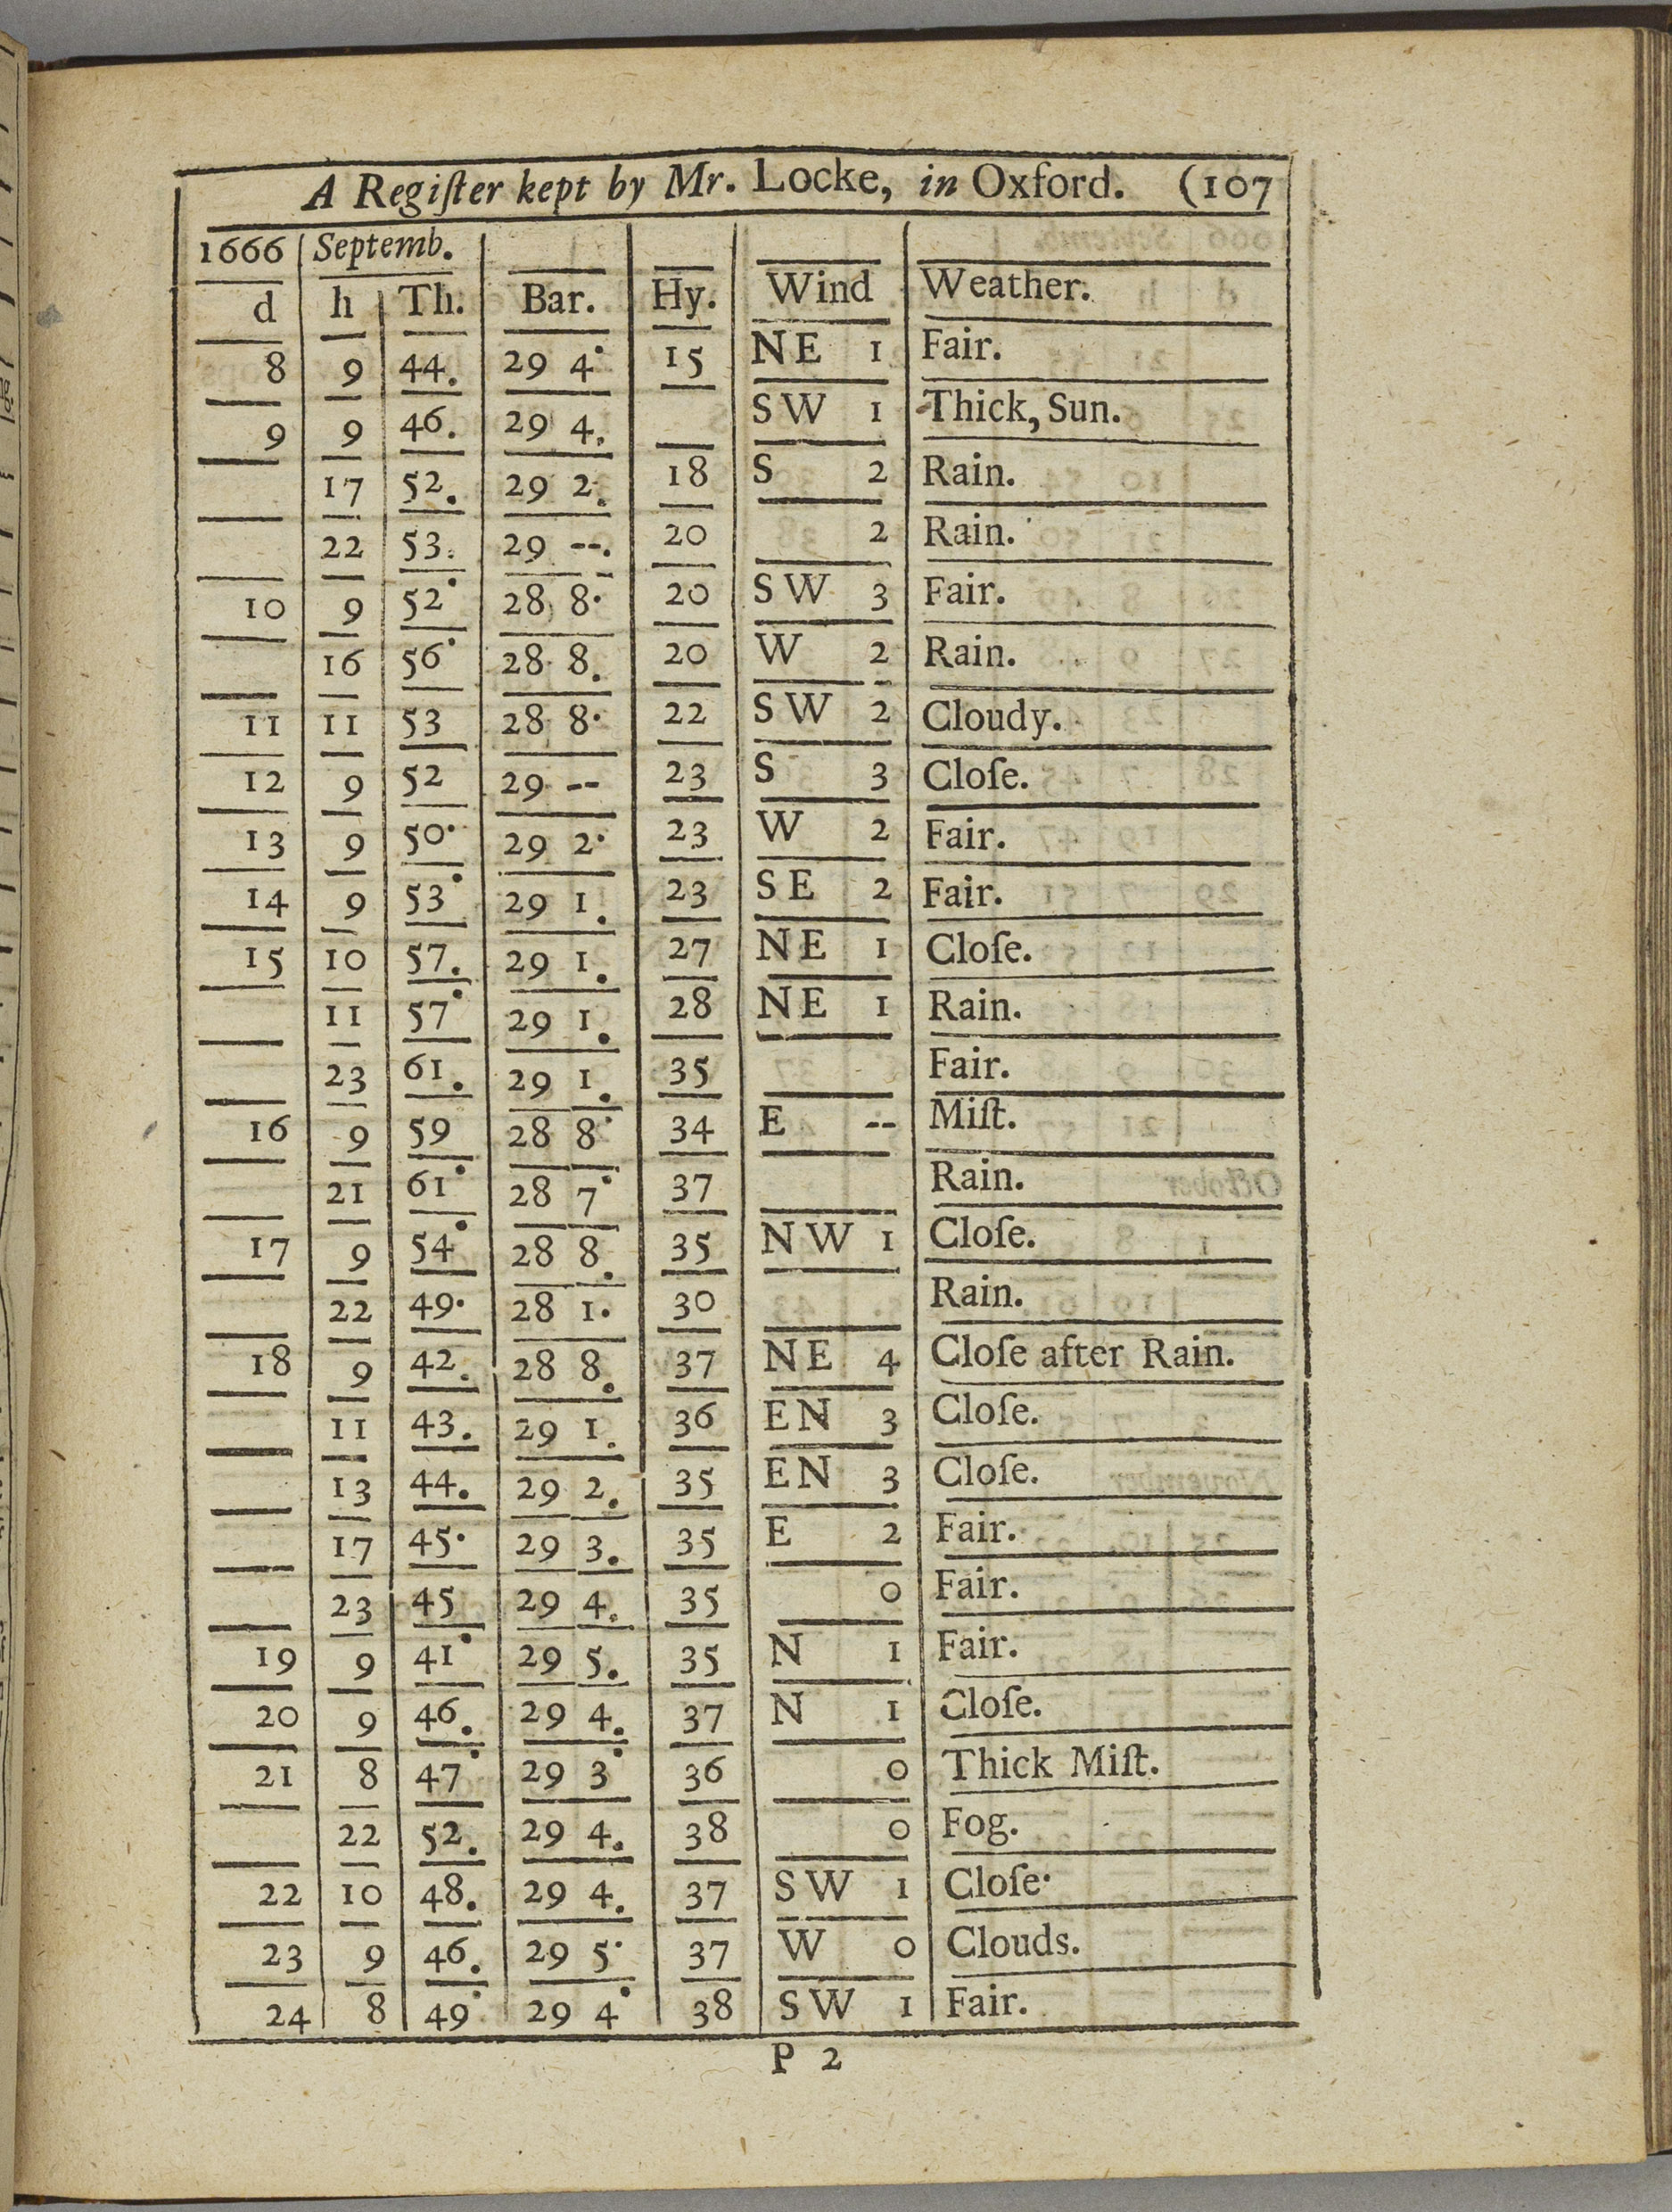 A Regiſter kept by Mr. Locke, in Oxford. (107
1666 Septemb.
d h Th. Bar. Hy. Wind Weather.
8 9 44. 29 4· 15 NE 1 Fair.
9 9 46. 29 4. SW 1 Thick, Sun.
17 52. 29 2. 18 S 2 Rain.
22 53. 29 --. 20 2 Rain.
10 9 52· 28 8· 20 SW 3 Fair.
16 56· 28 8. 20 W 2 Rain.
11 11 53 28 8· 22 SW 2 Cloudy.
12 9 52 29 -- 23 S 3 Cloſe.
13 9 50· 29 2· 23 W 2 Fair.
14 9 53· 29 1. 23 SE 2 Fair.
15 10 57. 29 1. 27 NE 1 Cloſe.
11 57· 29 1. 28 NE 1 Rain.
23 61. 29 1. 35 Fair.
16 9 59 28 8· 34 E -- Miſt.
21 61· 28 7· 37 Rain.
17 9 54· 28 8. 35 NW 1 Cloſe.
22 49· 28 1. 30 Rain.
18 9 42. 28 8. 37 NE 4 Cloſe after Rain.
11 43. 29 1. 36 EN 3 Cloſe.
13 44. 29 2. 35 EN 3 Cloſe.
17 45· 29 3. 35 E 2 Fair.
23 45 29 4. 35 0 Fair.
19 9 41· 29 5. 35 N 1 Fair.
20 9 46. 29 4. 37 N 1 Cloſe.
21 8 47· 29 3· 36 0 Thick Miſt.
22 52. 29 4. 38 0 Fog.
22 10 48. 29 4. 37 SW 1 Cloſe·
23 9 46. 29 5· 37 W 0 Clouds.
24 8 49· 29 4· 38 SW 1 Fair.
P 2